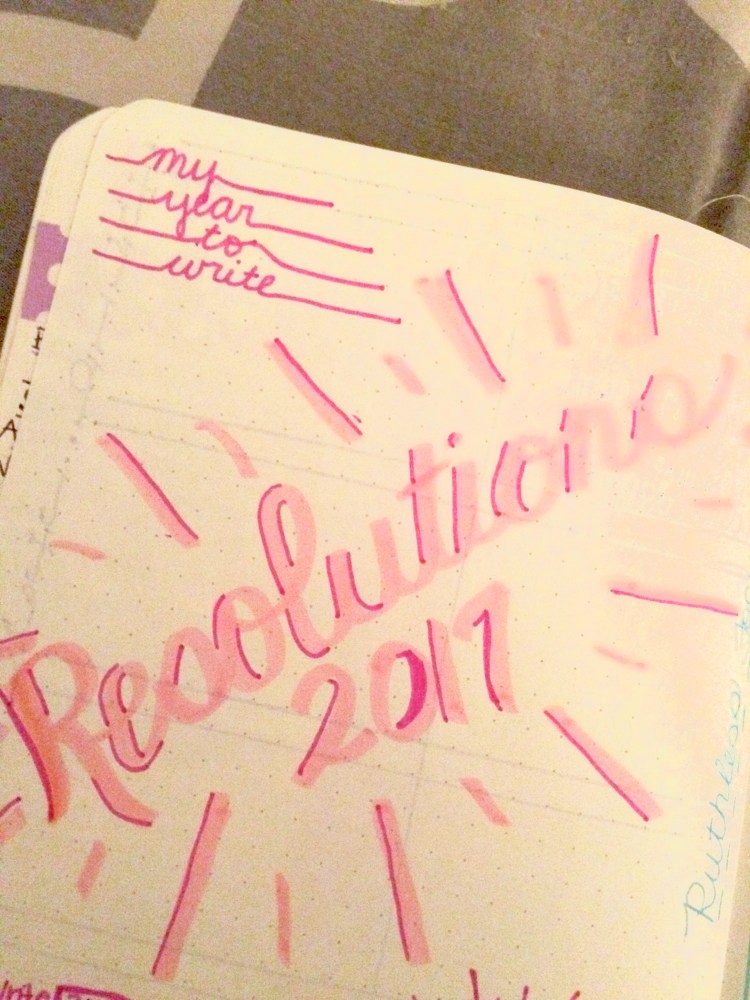 my
year
to
write
Resolutions
2017
Ruthless